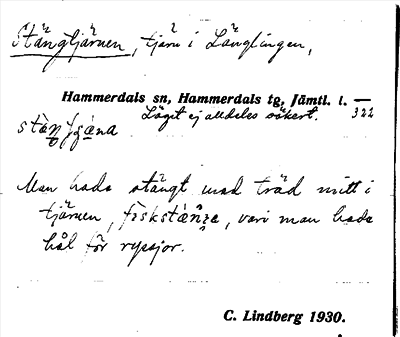 Stängtjärnen, tjärn i Långlingen,
Hammerdals sn, Hammerdals tg, Jämtl. l. —
Läget ej alldeles säkert. 322
Man hade stängt med träd mitt i
tjärnen, vari man hade
hål för ryssjor.
C. Lindberg 1930.